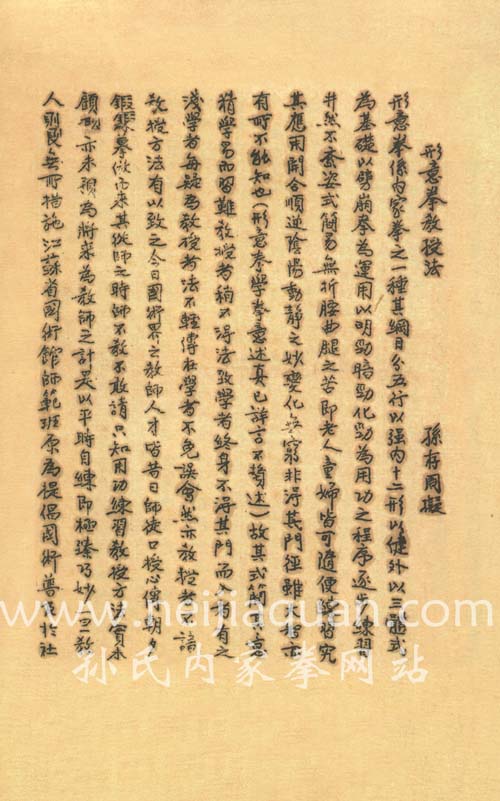 形意拳教授法
孫存周擬
形意拳係內家拳之一種其綱目分五行以强內十二形以健外以三體式
為基礎以劈崩拳為運用以明勁暗勁化勁為用功之程序逐步練習
井然不紊姿式簡易無折腰曲腿之苦即老人童婦皆可隨便練習究
其應用開合順逆陰陽動靜之妙變化無窮非得其門徑雖習亦
有所不能知也(形意拳學拳意述真已詳言不贅述)故其式簡其意
精學易而習難教授者稍不得法致學者終身不得其門而入者有之
淺學者每疑為教授者法不輕傳在學者不免誤會然亦教授者不諳
教授方法有以致之今日國術界之教師人才皆昔日師徒口授心傳朝夕
鍛鍊摹倣而來其從師之時師不教不敢請只知用功練習教授方法實未
顧及亦未預為將來為教師之計是以平時自練即極臻巧妙一旦教
人則良無所措施江蘇省國術館師範班原為提倡國術普及於社
www.neijiaquan.com
孙氏内家拳网站